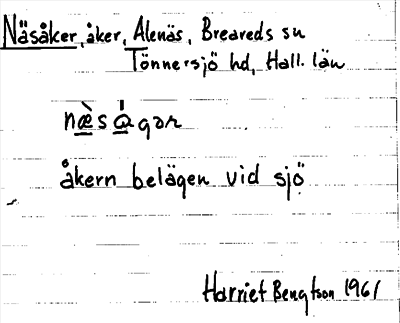 Näsåker, åker, Alenäs, Breareds sn
Tönnersjö hd, Hall. län
næ̀sågər
åkern belägen vid sjö
Harriet Bengtson 1961